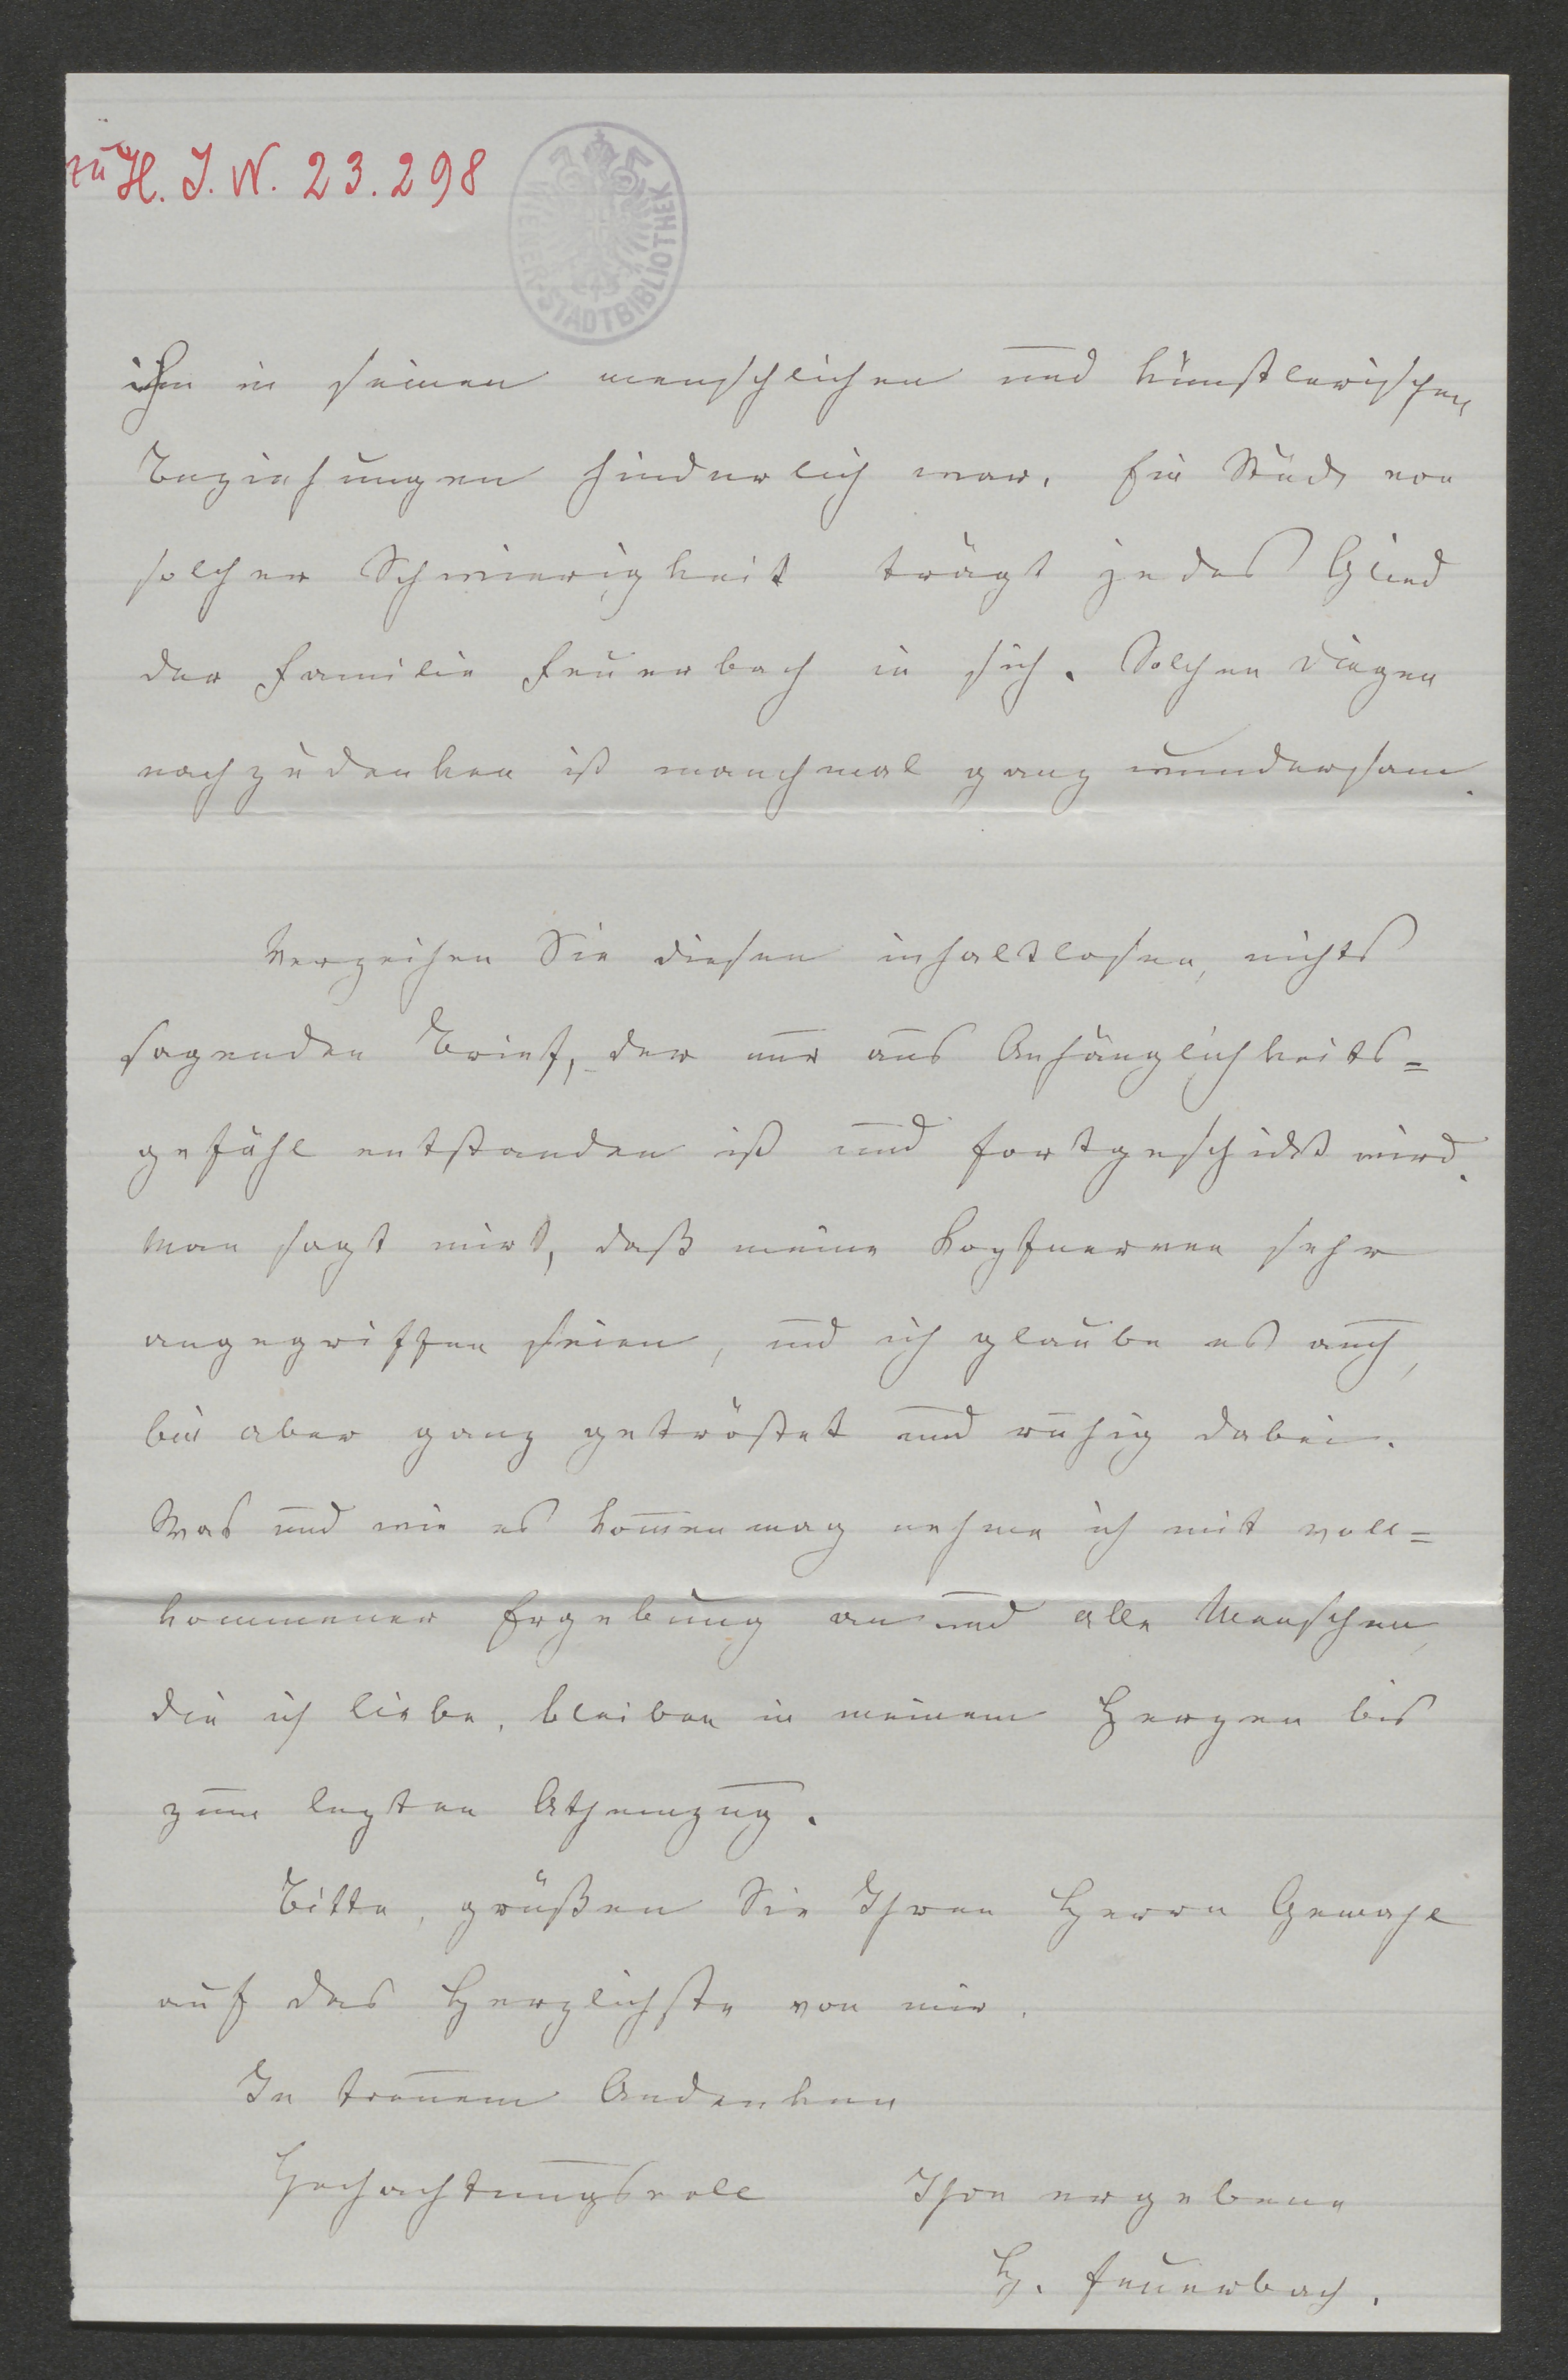 zu H. I. N. 23.298
WIENER STADTBIBLIOTHEK
ihm in seinen menschlichen und künstlerischen
Beziehungen hinderlich war. Ein Stück von
solcher Schwierigkeit trägt jedes Glied
der Familie Feuerbach in sich. Solchen Dingen
nachzudenken ist manchmal ganz wundersam.
Verzeihen Sie diesen inhaltlosen, nichts
sagenden Brief, der nur aus Anhänglichkeits=
gefühl entstanden ist und fortgeschickt wird.
Man sagt mir, daß meine Kopfnerven sehr
angegriffen seien, und ich glaube es auch,
bin aber ganz getröstet und ruhig dabei.
Was und wie es kom̅en mag nehme ich mit voll=
kommener Ergebung an und alle Menschen,
die ich liebe, bleiben in meinem Herzen bis
zum letzten Athemzug.
Bitte, grüßen Sie Ihren Herrn Gemahl
auf das Herzlichste von mir.
In treuem Andenken
Hochachtungsvoll Ihre ergebene
H. Feuerbach.